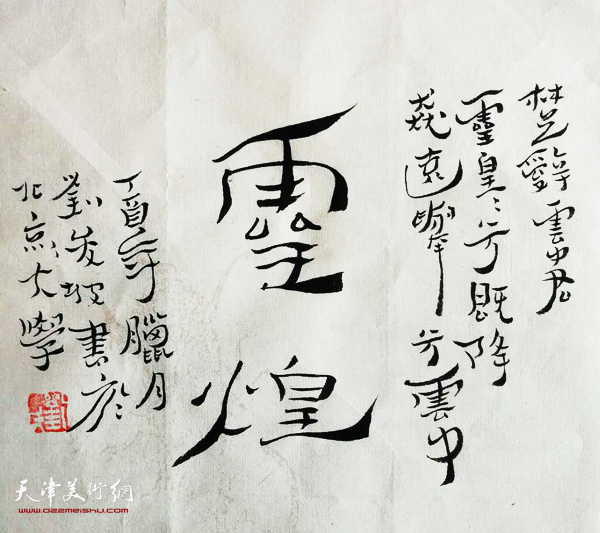 楚辭雲中君
靈皇〻兮既降
猋遠舉兮雲中
靈煌
丁酉年臘月
劉書於
北京大學
天津美術網
www.022meishu.com